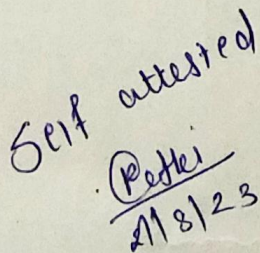 Self attested
21/8/23